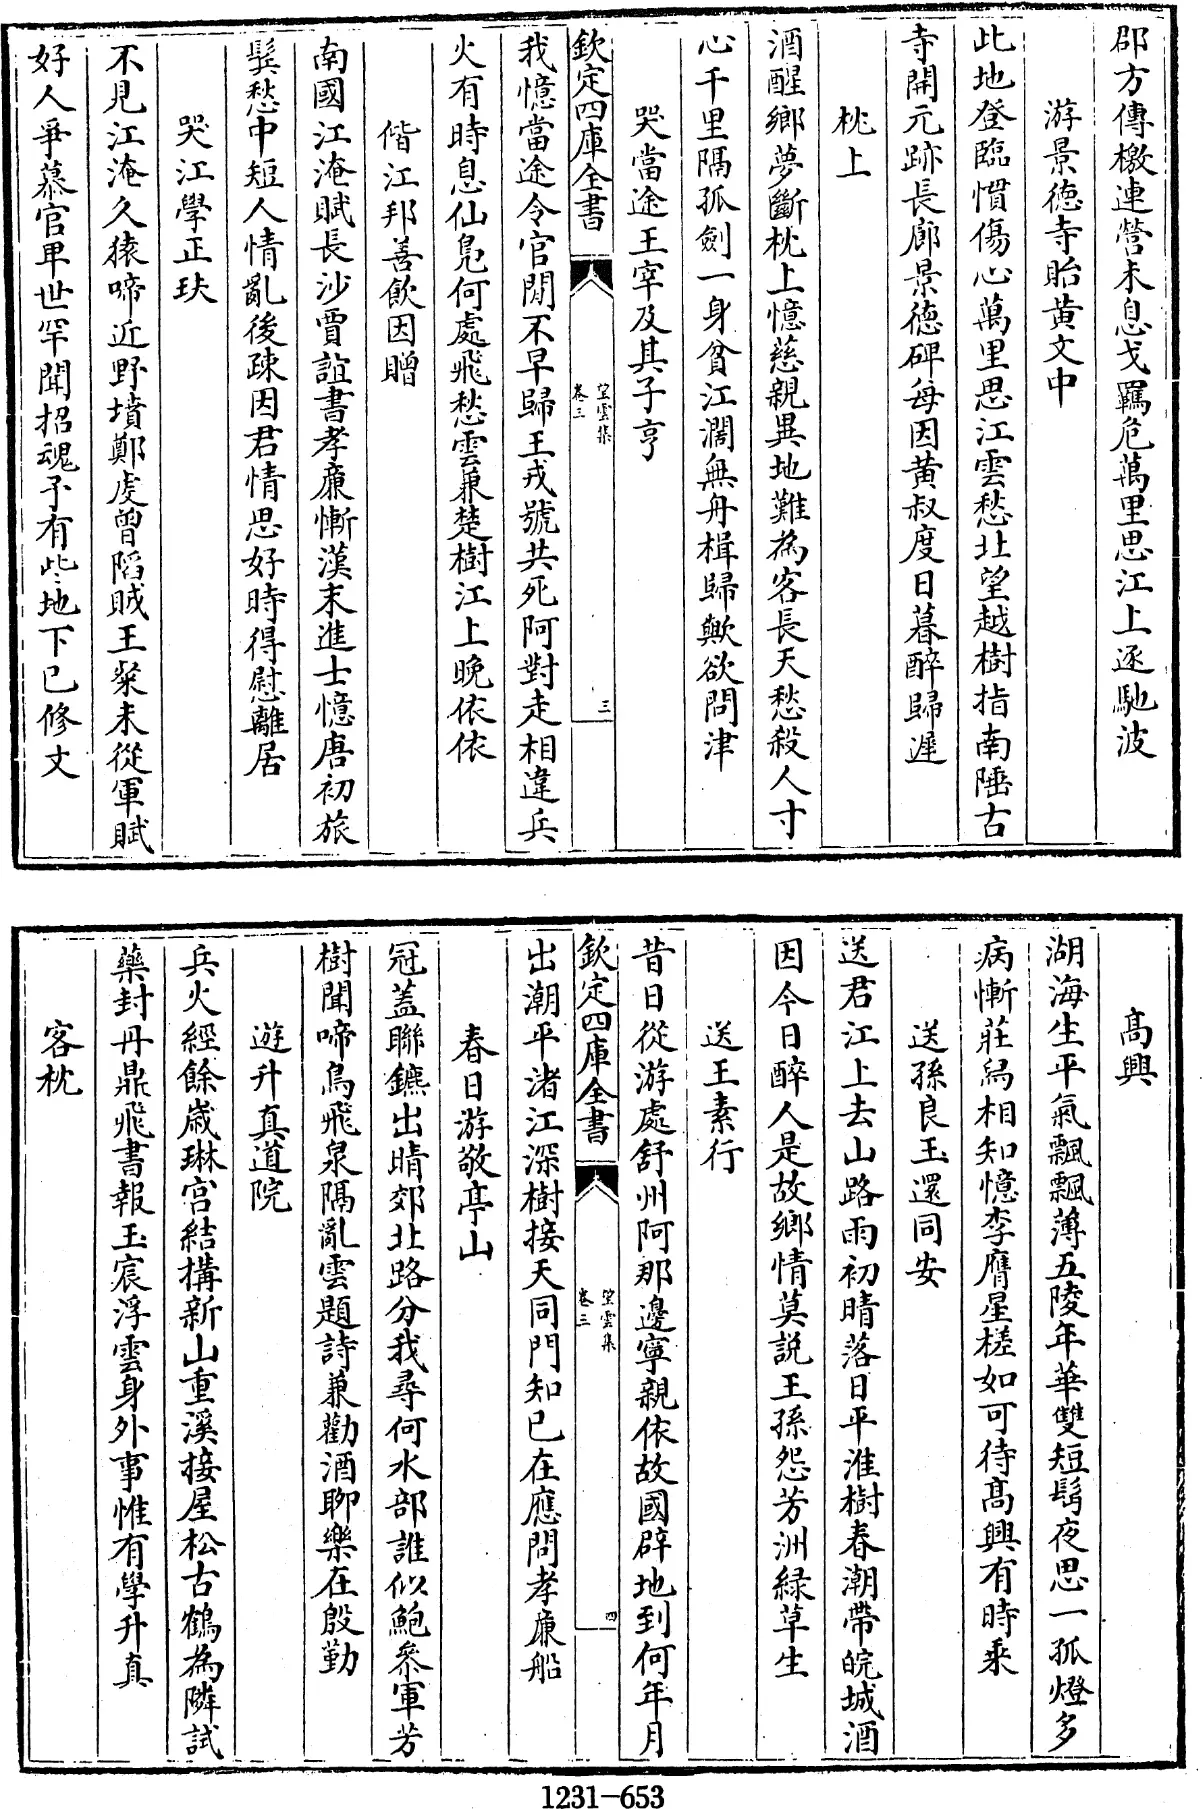 郡方傳檄連營未息戈羈危萬里思江上逐馳波
游景徳寺貽黄文中
此地登臨慣傷心萬里思江雲愁北望越樹指南陲古
寺開元跡長廊景徳碑每因黄叔度日暮醉歸遲
枕上
酒醒鄉夢斷枕上憶慈親異地難為客長天愁殺人寸
心千里隔孤劍一身貧江濶無舟楫歸歟欲問津
哭當途王宰及其子亨
欽定四庫全書
望雲集
卷三
三
我憶當途令官閒不早歸王戎號共死阿對走相違兵
火有時息仙鳬何處飛愁雲兼楚樹江上晚依依
偕江邦善飲因贈
南國江淹賦長沙賈誼書孝廉慚漢末進士憶唐初旅
鬂愁中短人情亂後疎因君情思好時得慰離居
哭江學正玞
不見江淹久猿啼近野墳鄭虔曾䧟賊王粲未從軍賦
好人爭慕官卑世罕聞招魂予有些地下已修文
髙興
湖海生平氣飄飄薄五陵年華雙短鬂夜思一孤燈多
病慚莊舄相知憶李膺星槎如可待髙興有時乗
送孫良玉還同安
送君江上去山路雨初晴落日平淮樹春潮帶皖城酒
因今日醉人是故鄉情莫説王孫怨芳洲緑草生
送王素行
昔日從游處舒州阿那邊寧親依故國辟地到何年月
欽定四庫全書
望雲集
卷三
四
出潮平渚江深樹接天同門知已在應問孝廉船
春日游敬亭山
冠蓋聯鑣出晴郊北路分我尋何水部誰似鮑叅軍芳
樹聞啼鳥飛泉隔亂雲題詩兼勸酒聊樂在殷勤
遊升真道院
兵火經餘嵗琳宫結構新山重溪接屋松古鶴為隣試
藥封丹鼎飛書報玉宸浮雲身外事惟有學升真
客枕
1231—653